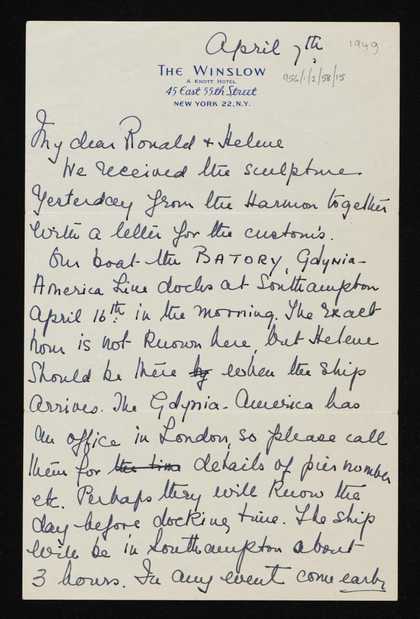 April 7th 1949
956/1/2/58/15
THE WINSLOW
A KNOTT HOTEL
45 East 55th Street
NEW YORK 22, N.Y.
My dear Ronald + Helene
We received the sculpture
yesterday from the Harmon together
with a letter for the customs.
Our boat the BATORY, Gdynia-
America Line docks at Southampton
April 16th in the morning. The exact
hour is not known here, but Helene
should be there by when the ship
arrives. The Gdynia-America has
an office in London, so please call
them for the time details of pier number
etc. Perhaps they will know the
day before docking time. The ship
will be in Southampton about
3 hours. In any event come early